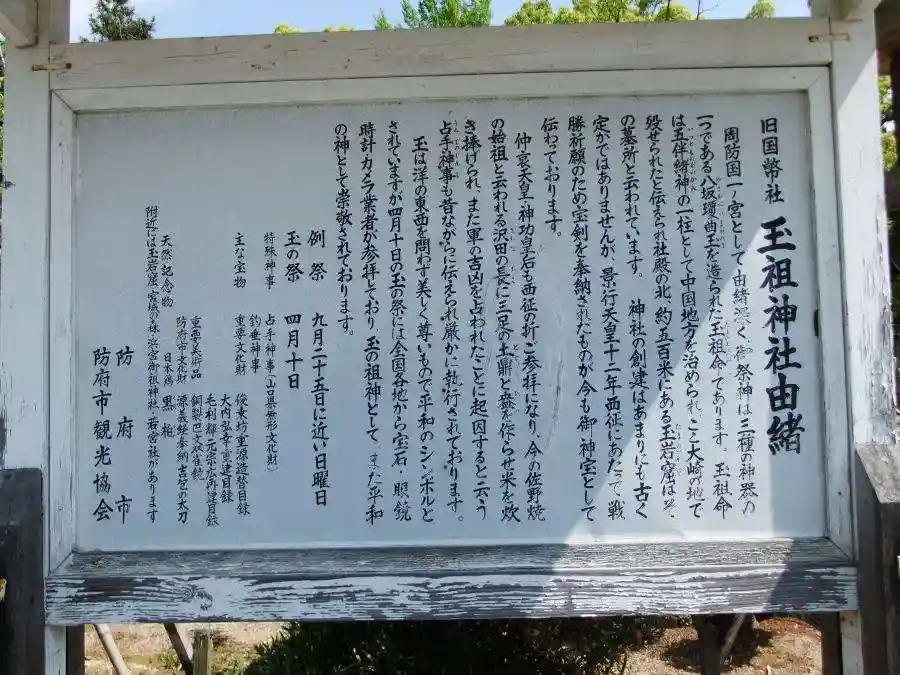 旧国幣社 玉祖神社由緒
周防国一ノ宮として由緒深く、御祭神は三種の神器の
一つである八坂瓊曲玉を造られた玉祖命であります。玉祖命
は五伴緒神の一柱として中国地方を治められ、こゝ大崎の地で
歿せられたと伝えられ社殿の北、約五百米にある玉岩窟は、そ
の墓所と云われています。 神社の創建はあまりにも古く
定かではありませんが、景行天皇十二年西征にあたって、戦
勝祈願のため宝剣を奉納されたものが今も御神宝として
伝わっております。
仲哀天皇・神功皇后も西征の折ご参拝になり、今の佐野焼
の始祖と云われる沢田の長に三足の土鼎と盎を作らせ米を炊
き捧げられ、また軍の吉凶を占われたことに起因すると云う
占手神事も昔ながらに伝えられ厳かに執行されております。
玉は洋の東西を問わず美しく尊いもので平和のシンボルと
されていますが四月十日の玉の祭には全国各地から宝石・眼鏡
時計カメラ業者が参拝しており、玉の祖神として、また平和
の神として崇敬されております。
例祭 九月二十五日に近い日曜日
玉の祭 四月十日
特殊神事 占手神事(山口県無形文化財)
釣垂神事
主な宝物 重要文化財 俊乗坊重源造替目録
大内弘幸重建目録
防府市文化財 毛利輝元宗広再建目録
重要美術品 銅製巴文散茶釜
源義経奉納吉包の太刀
天然記念物 日本鶏 黒柏
附近には玉岩窟、宮城の森、浜宮御祖神社、若宮社があります
防府市
防府市観光協会